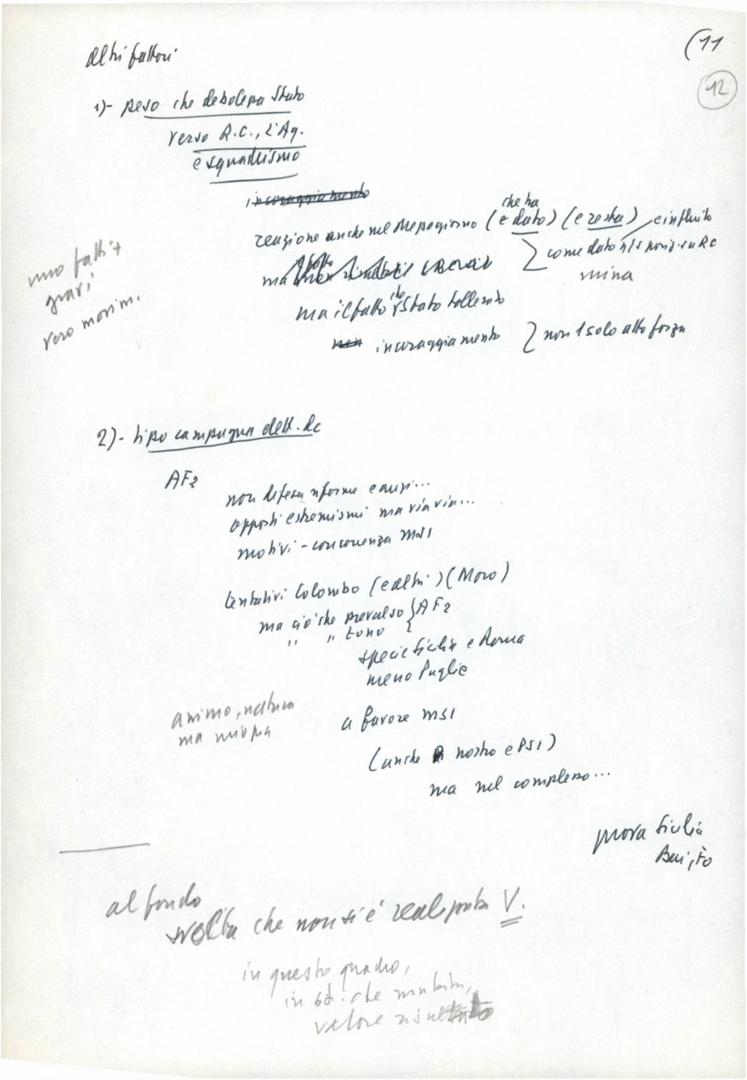 altri fattori
(11
12
1)- peso che debolezza Stato
verso R.C., L'Aq.
e squadrismo
incoraggiamento
che ha
reazione anche nel Mezzogiorno (è dato) (e resta) e influito
come dato
ma
mina
uno fatti +
gravi
vero movim.
ma il fatto che Stato tollerato
non incoraggiamento } non 1 solo atto forza
2)- tipo campagna della Dc
AF2
non difesa riforme e anzi...
opposti estremismi ma via via...
motivi - concorrenza MSI
tentativi Colombo (e altri) (Moro)
ma ciò che prevalso } AF2
" " tono
specie Sicilia e Roma
meno Puglie
animo, natura
ma miopia
a favore MSI
(anche nostro e PSI)
ma nel complesso...
prova Sicilia
al fondo
svolta che non si è realm. posta V.
in questo quadro,
in che
valore risultato